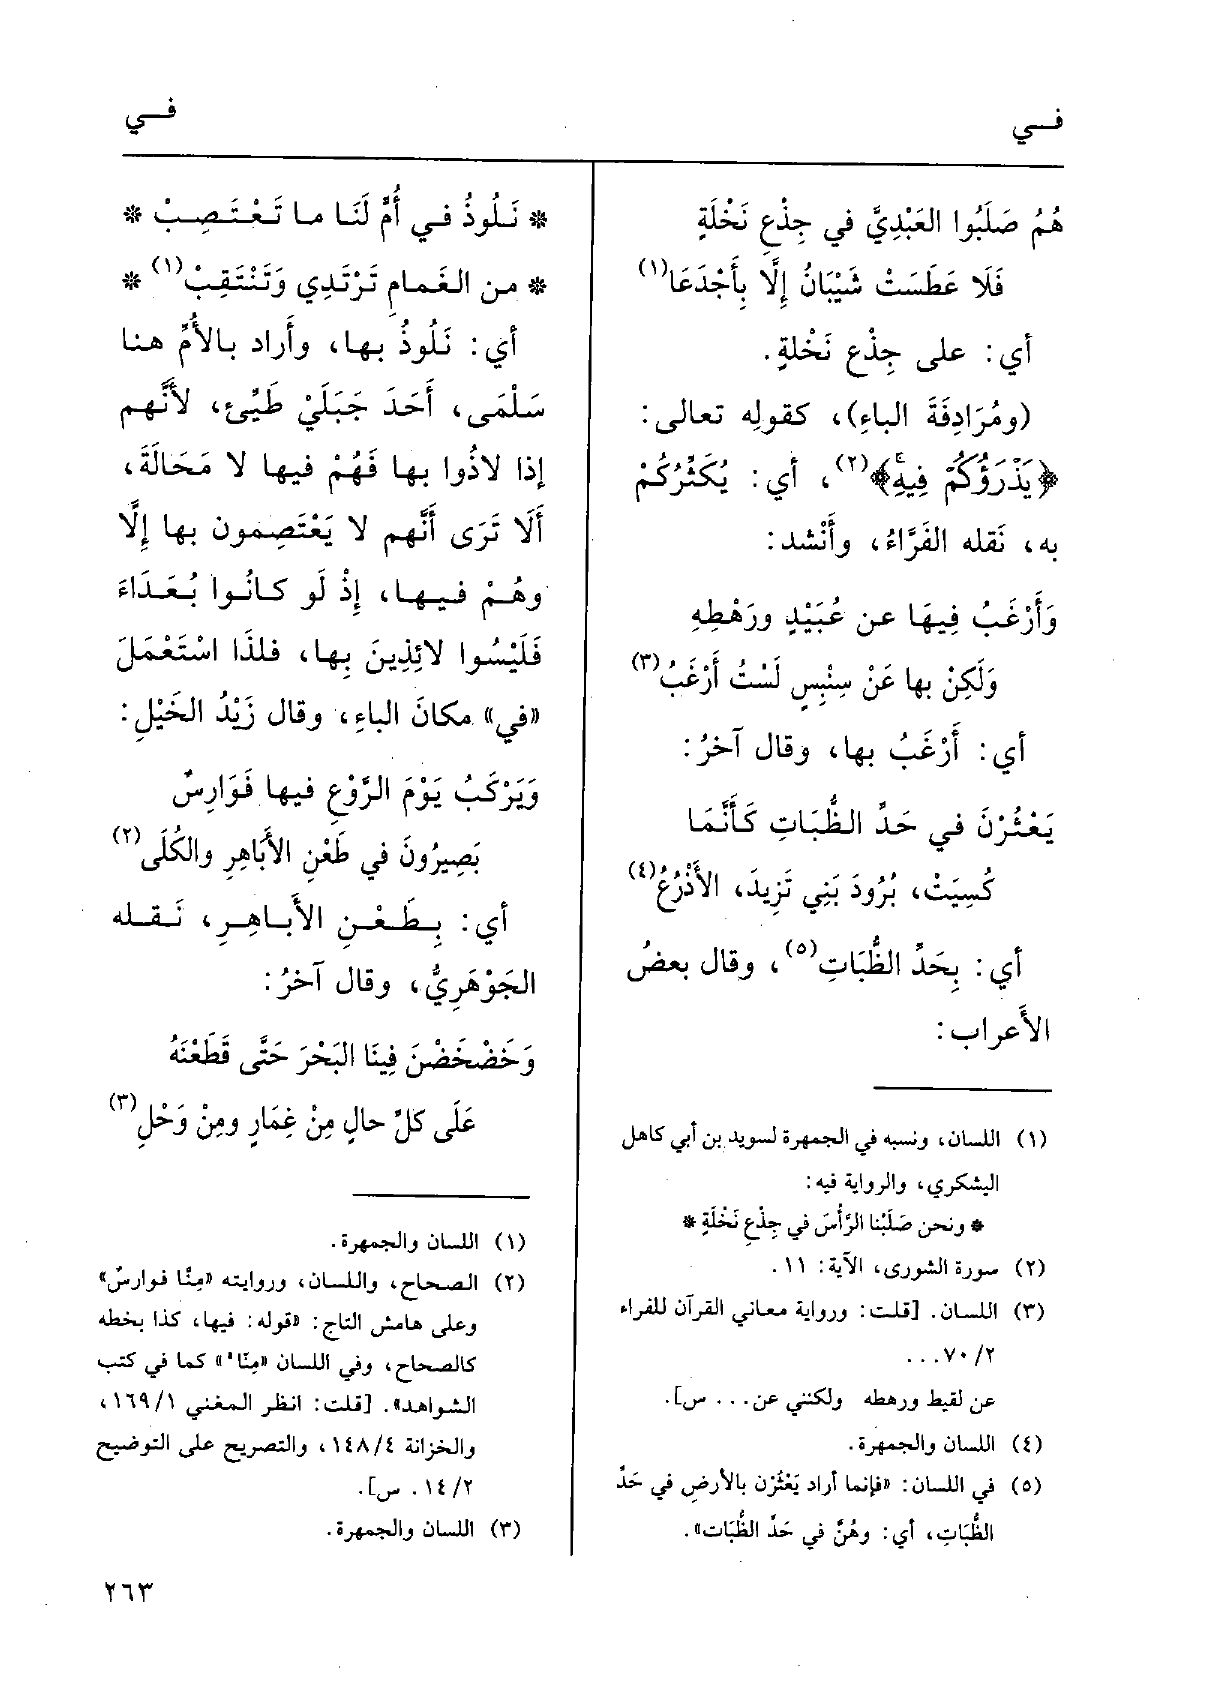 في
في
هُمُ صَلَبُوا العَبْدِيَّ في جِذْعِ نَخْلَةٍ
فَلَا عَطَسَتْ شَيْبَانُ إِلَّا بِأَجْدَعَا(١)
أي: على جِذْعِ نَخْلةٍ.
(ومُرَادِفَةَ الباءِ)، كقولِه تعالى:
﴿يَذْرَؤُكُمْ فِيهِ﴾(٢)، أي: يُكَثِّرُكُمْ
به، نَقله الفَرَّاءُ، وأَنْشد:
وَأَرْغَبُ فِيهَا عن عُبَيْدٍ ورَهْطِهِ
وَلَكِنْ بها عَنْ سِنْبِسٍ لَسْتُ أَرْغَبُ(٣)
أي: أَرْغَبُ بها، وقال آخرُ:
يَعْثُرْنَ في حَدِّ الظُّبَاتِ كَأَنَّمَا
كُسِيَتْ، بُرُودَ بَنِي تَزِيدَ، الأَذْرُعُ(٤)
أي: بِحَدِّ الظُّبَاتِ(٥)، وقال بعضُ
الأَعراب:
(١) اللسان، ونسبه في الجمهرة لسويد بن أبي كاهل
اليشكري، والرواية فيه:
* ونحن صَلَبْنا الرَّأْسَ في جِذْعِ نَخْلَةٍ *
(٢) سورة الشورى، الآية: ١١.
(٣) اللسان. [قلت: ورواية معاني القرآن للفراء
٧٠/٢...
عن لقيط ورهطه ولكنني عن... س].
(٤) اللسان والجمهرة.
(٥) في اللسان: «فإنما أراد يَعْثُرْن بالأرضِ في حَدِّ
الظُّبَاتِ، أي: وهُنَّ في حَدِّ الظُّبَات».
* نَلُوذُ في أُمٍّ لَنَا ما تَعْتَصِبْ *
* من الغَمامِ تَرْتَدِي وَتَنْتَقِبْ(١) *
أي: نَلُوذُ بها، وأَراد بالأُمِّ هنا
سَلْمَى، أَحَدَ جَبَلَيْ طَيِّئ، لأَنَّهم
إذا لاذُوا بها فَهُمْ فيها لا مَحَالَةَ،
أَلَا تَرَى أَنَّهم لا يَعْتَصِمون بها إِلَّا
وهُمْ فيها، إِذْ لَو كانُوا بُعَدَاءَ
فَلَيْسُوا لائِذِينَ بِها، فلذَا اسْتَعْمَلَ
«في» مكانَ الباءِ، وقال زَيْدُ الخَيْلِ:
وَيَرْكَبُ يَوْمَ الرَّوْعِ فيها فَوَارِسٌ
بَصِيرُونَ في طَعْنِ الأَبَاهِرِ والكُلَى(٢)
أي: بِطَعْنِ الأَباهِرِ، نَقله
الجَوْهَرِيُّ، وقال آخرُ:
وَخَضْخَضْنَ فِينَا البَحْرَ حَتَّى قَطَعْنَهُ
عَلَى كلِّ حالٍ مِنْ غِمَارٍ ومِنْ وَحْلِ(٣)
(١) اللسان والجمهرة.
(٢) الصحاح، واللسان، وروايته «مِنَّا فوارسٌ»
وعلى هامش التاج: «قوله: فيها، كذا بخطه
كالصحاح، وفي اللسان «مِنَّا» كما في كتب
الشواهد». [قلت: انظر المغني ١٦٩/١،
والخزانة ١٤٨/٤، والتصريح على التوضيح
١٤/٢. س].
(٣) اللسان والجمهرة.
٢٦٣